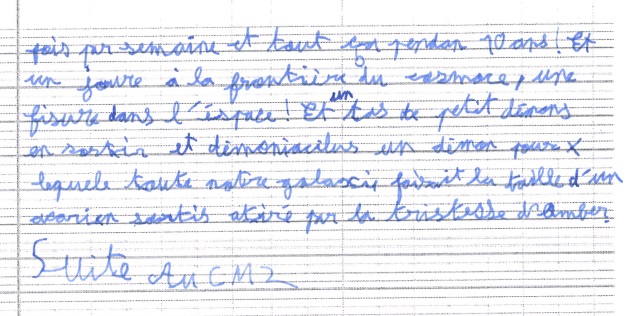 fois par semaine et tout ça pendan 10 ans! Et
un joure à la frontière du cosmoce, une
fisure dans l'éspace! Et un tas de petit démons
en sortir et démoniacilus un démon pour
lequele toute notre galaxie faisait la taille d'un
acarien sortis atiré par la tristesse d'amber.
Suite Au CM2